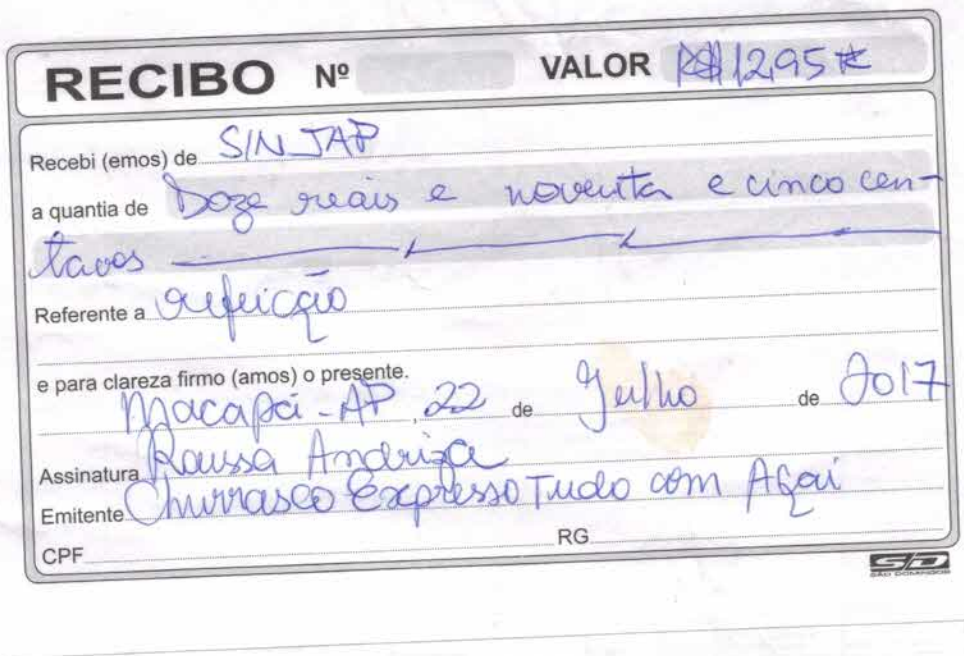 RECIBO Nº VALOR R$ 12,95
Recebi (emos) de SINJAP
a quantia de Doze reais e noventa e cinco cen-
tavos
Referente a refeicção
e para clareza firmo (amos) o presente.
Macapá - AP, 22 de Julho de 2017
Assinatura Raussa Andriza
Emitente Churrasco Expresso Tudo com Açaí
CPF RG
S/D
SÃO DOMINGOS